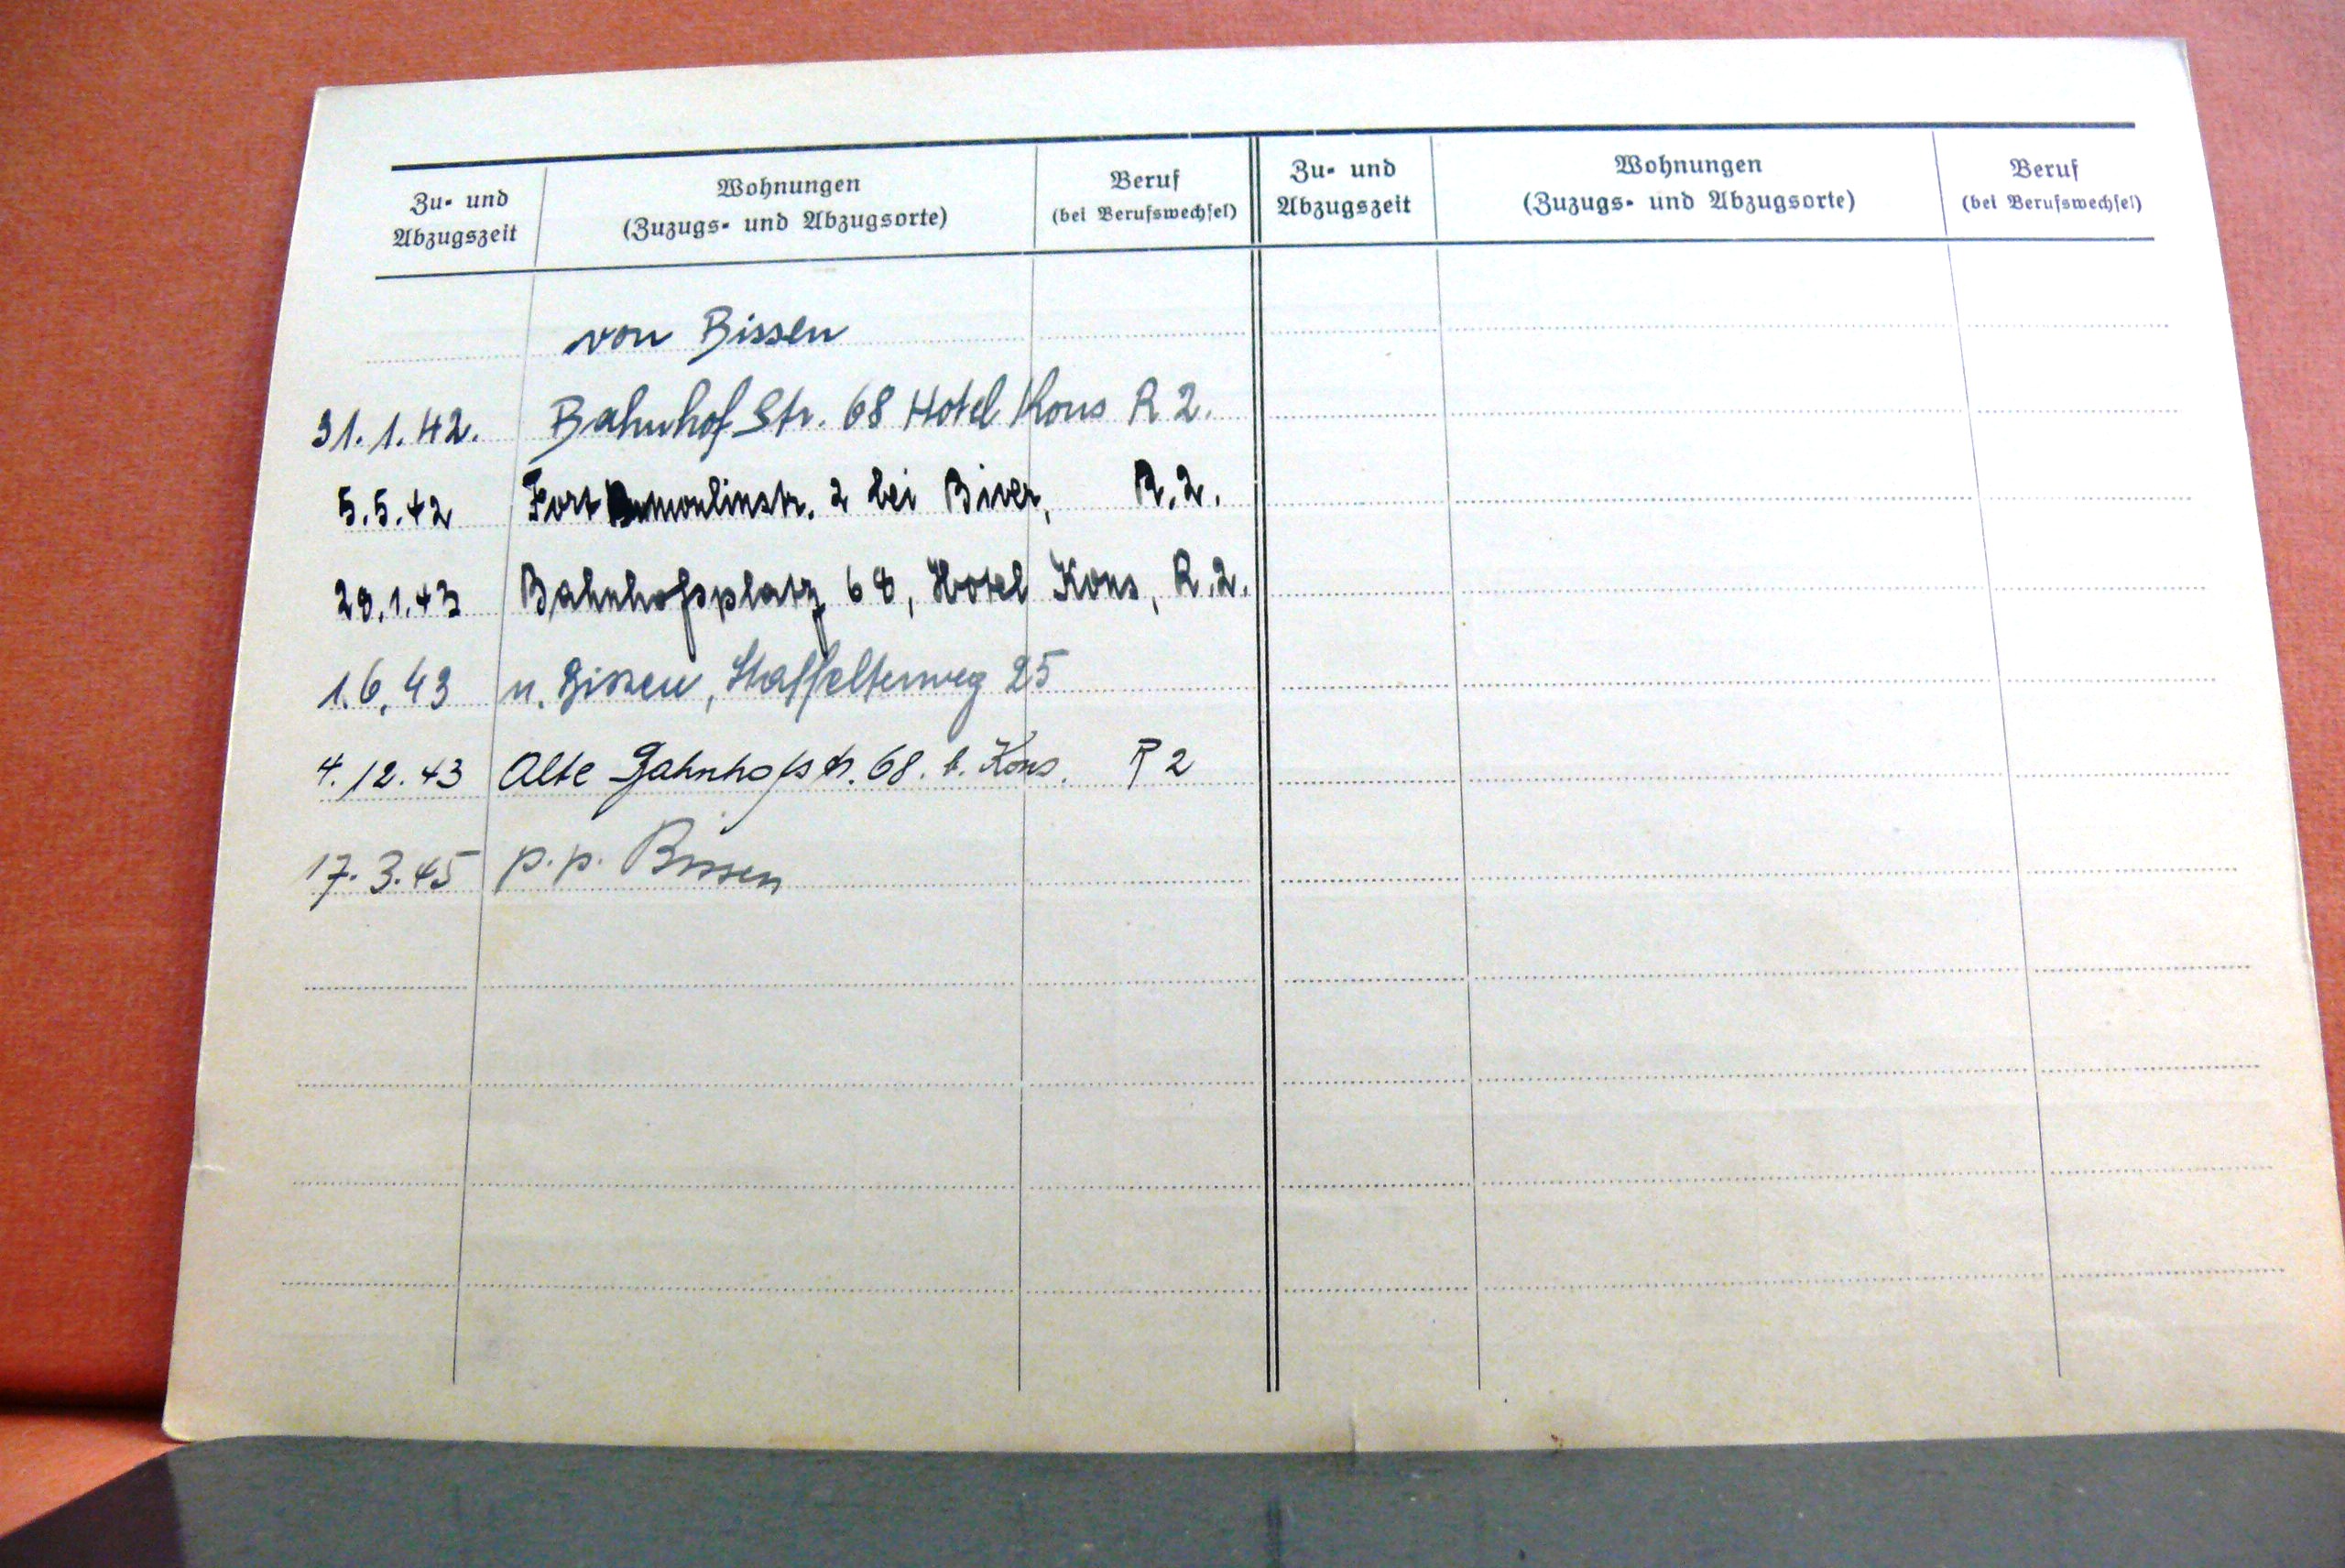 Zu- und Abzugszeit
Wohnungen
(Zuzugs- und Abzugsorte)
Beruf
(bei Berufswechsel)
Zu- und Abzugszeit
Wohnungen
(Zuzugs- und Abzugsorte)
Beruf
(bei Berufswechsel)
von Bissen
31.1.42. Bahnhof Str. 68 Hotel Kons R 2.
5.5.42 Fort 2 bei Biver, R.2.
28.1.43 Bahnhofsplatz 68, Hotel Kons, R.2.
1.6.43 n. Bissen, Staffelterweg 25
4.12.43 Alte Bahnhofstr. 68. b. Kons. R 2
17.3.45 p.p. Bissen